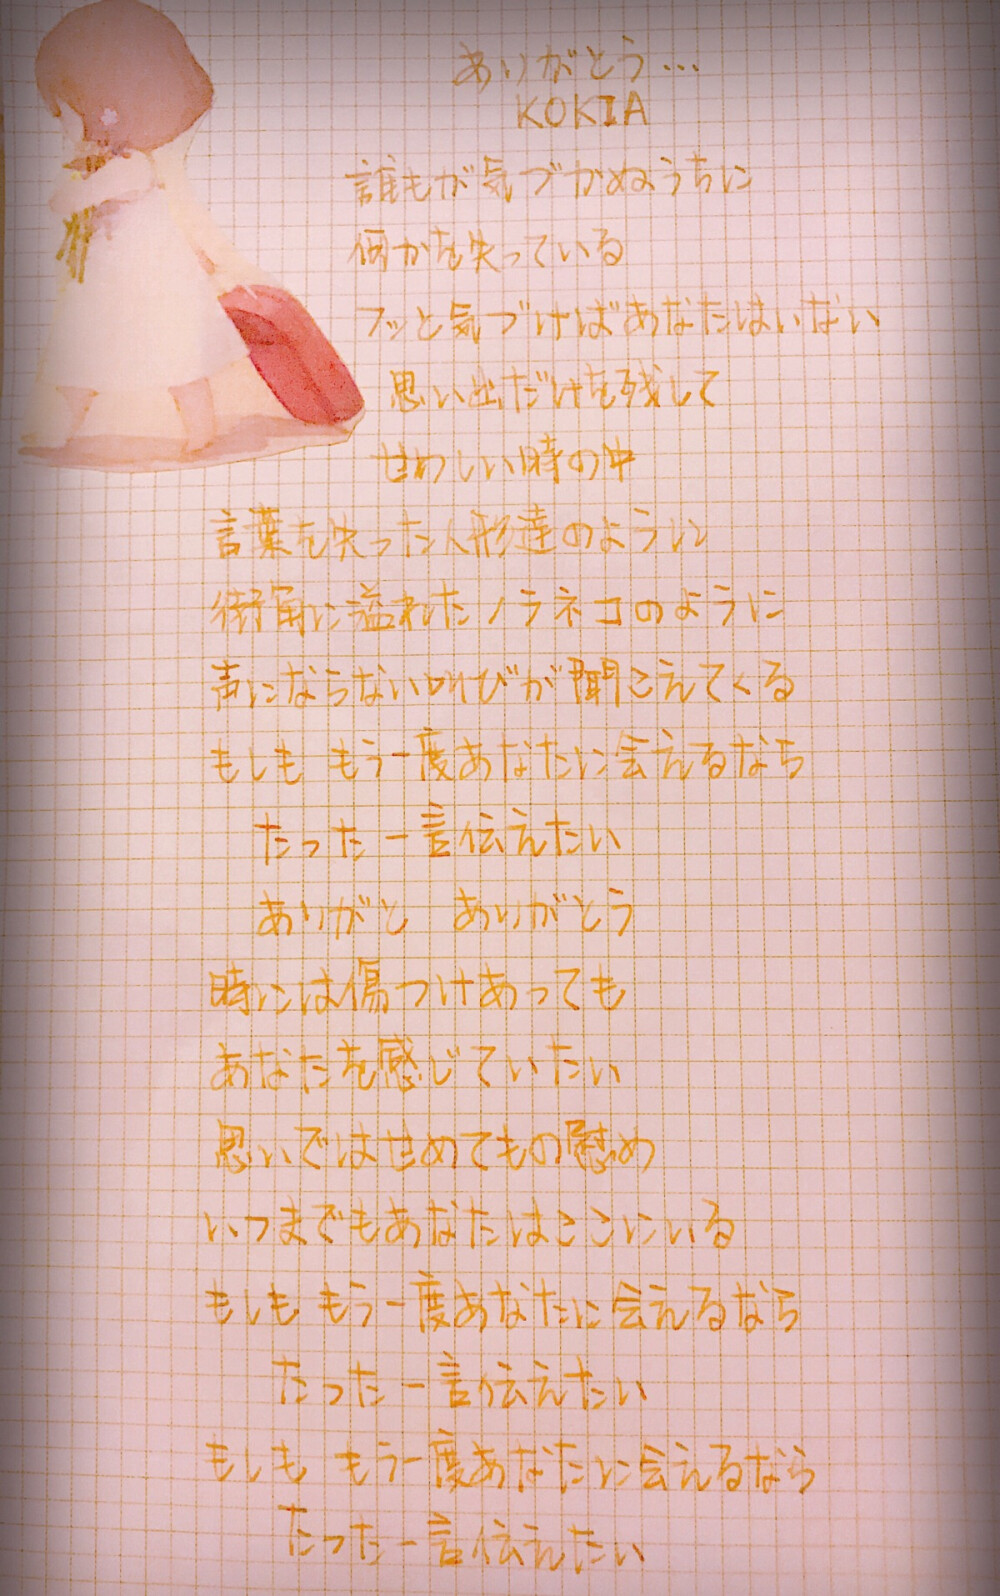 ありがとう…
KOKIA
誰もが気づかぬうちに
何かを失っている
フッと気づけばあなたはいない
思い出だけを残して
せわしい時の中
言葉を失った人形達のように
街角に溢れたノラネコのように
声にならない叫びが聞こえてくる
もしも もう一度あなたに会えるなら
たった一言伝えたい
ありがと ありがとう
時には傷つけあっても
あなたを感じていたい
思いではせめてもの慰め
いつまでもあなたはここにいる
もしも もう一度あなたに会えるなら
たった一言伝えたい
もしも もう一度あなたに会えるなら
たった一言伝えたい